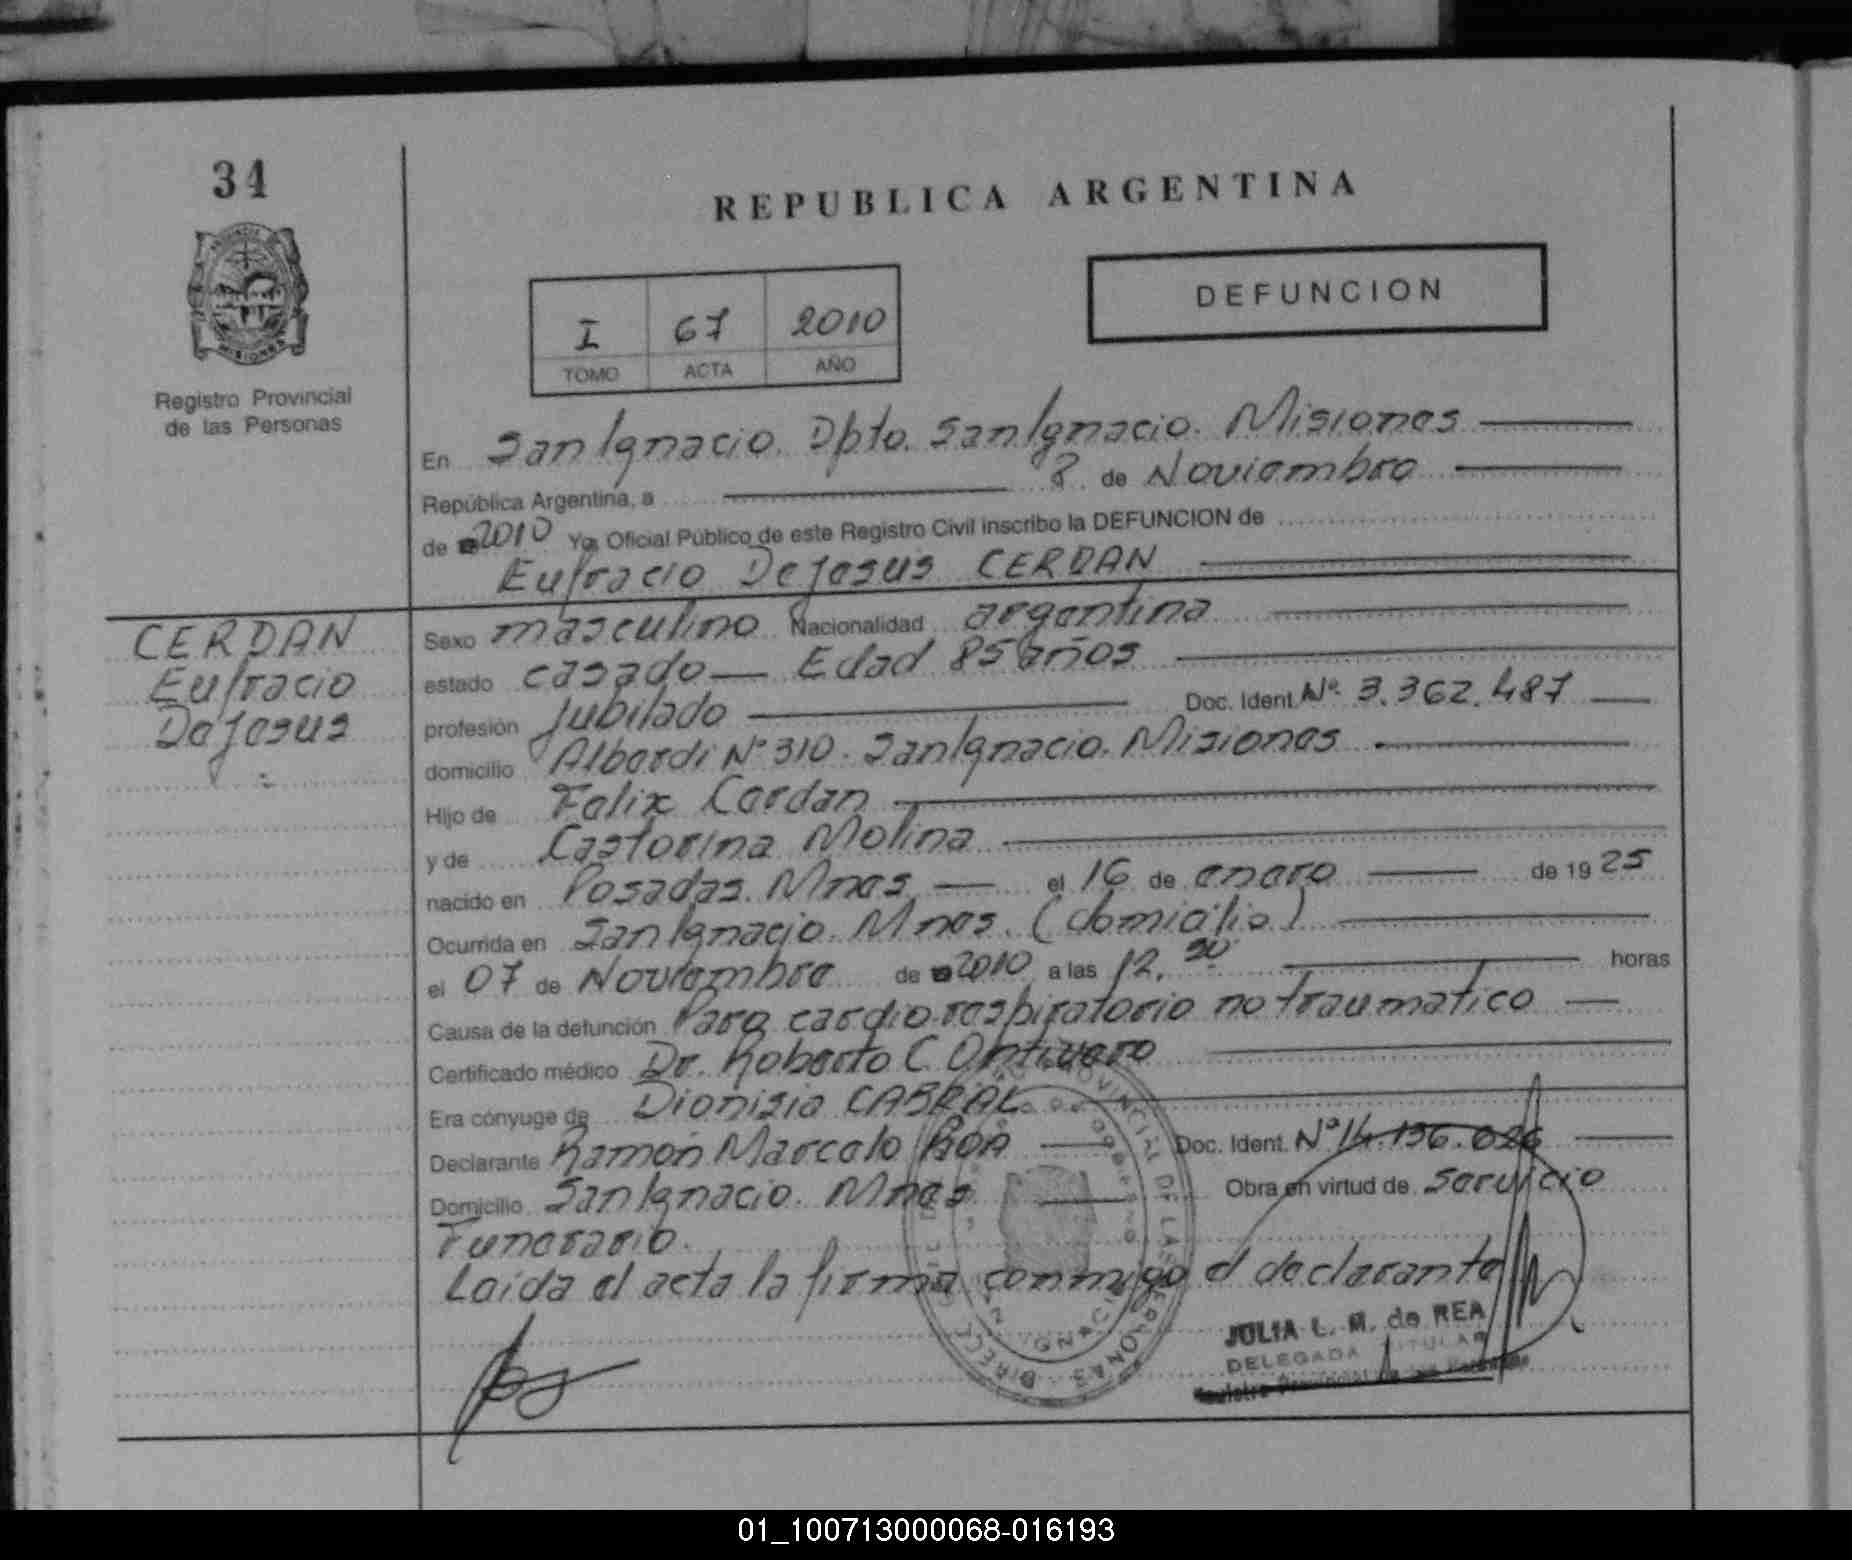 34
REPUBLICA ARGENTINA
DEFUNCION
I 67 2010
TOMO ACTA AÑO
MISIONES
Registro Provincial
de las Personas
En San Ignacio. Dpto. San Ignacio. Misiones
República Argentina, a 8 de Noviembre
de 2010 Yo, Oficial Público de este Registro Civil inscribo la DEFUNCION de
Eufracio De Jesus CERDAN
CERDAN
Eufracio
De Jesus
Sexo masculino Nacionalidad argentina
estado casado Edad 85 años
profesión Jubilado Doc. Ident. Nº 3.362.487
domicilio Alberdi Nº 310. San Ignacio. Misiones
Hijo de Felix Cerdan
y de Castorina Molina
nacido en Posadas. Mnes el 16 de enero de 1925
Ocurrida en San Ignacio. Mnes. (domicilio)
el 07 de Noviembre de 2010 a las 12.30 horas
Causa de la defunción Paro cardio respiratorio no traumatico
Certificado médico Dr. Roberto C. Ontivero
Era cónyuge de Dionisia CABRAL
Declarante Ramón Marcelo ROA Doc. Ident. Nº 14.136.026
Domicilio San Ignacio. Mnes Obra en virtud de Servicio
Funerario.
Leida el acta la firma conmigo el declarante
JULIA L. M. de REA
DELEGADA TITULAR
Registro Provincial de las Personas
01_100713000068-016193